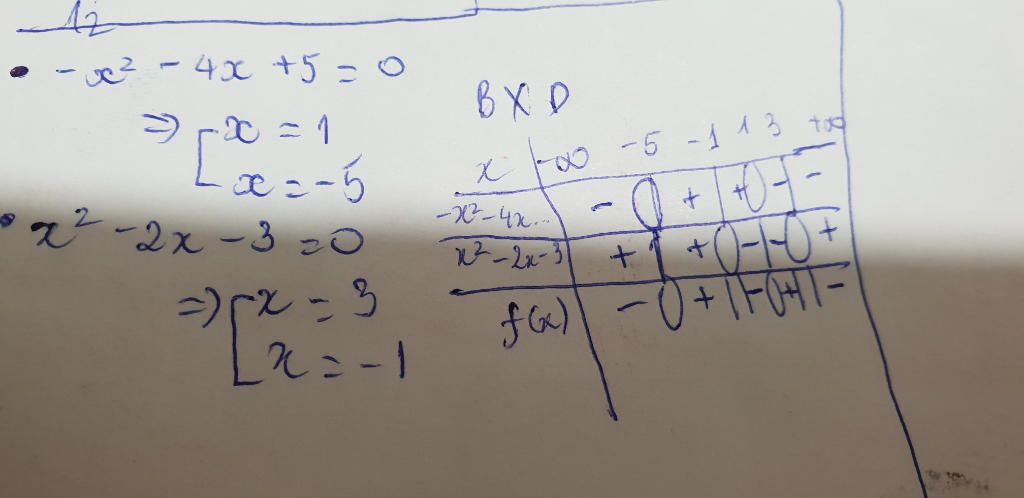 12
• -x² - 4x + 5 = 0
=> [ x = 1
x = -5
• x² - 2x - 3 = 0
=> [ x = 3
x = -1
B X D
x | -∞ -5 -1 1 3 +∞
-x²-4x... | - 0 + | + 0 - | -
x²-2x-3 | + | + 0 - | - 0 +
f(x) | - 0 + || - 0 + || -